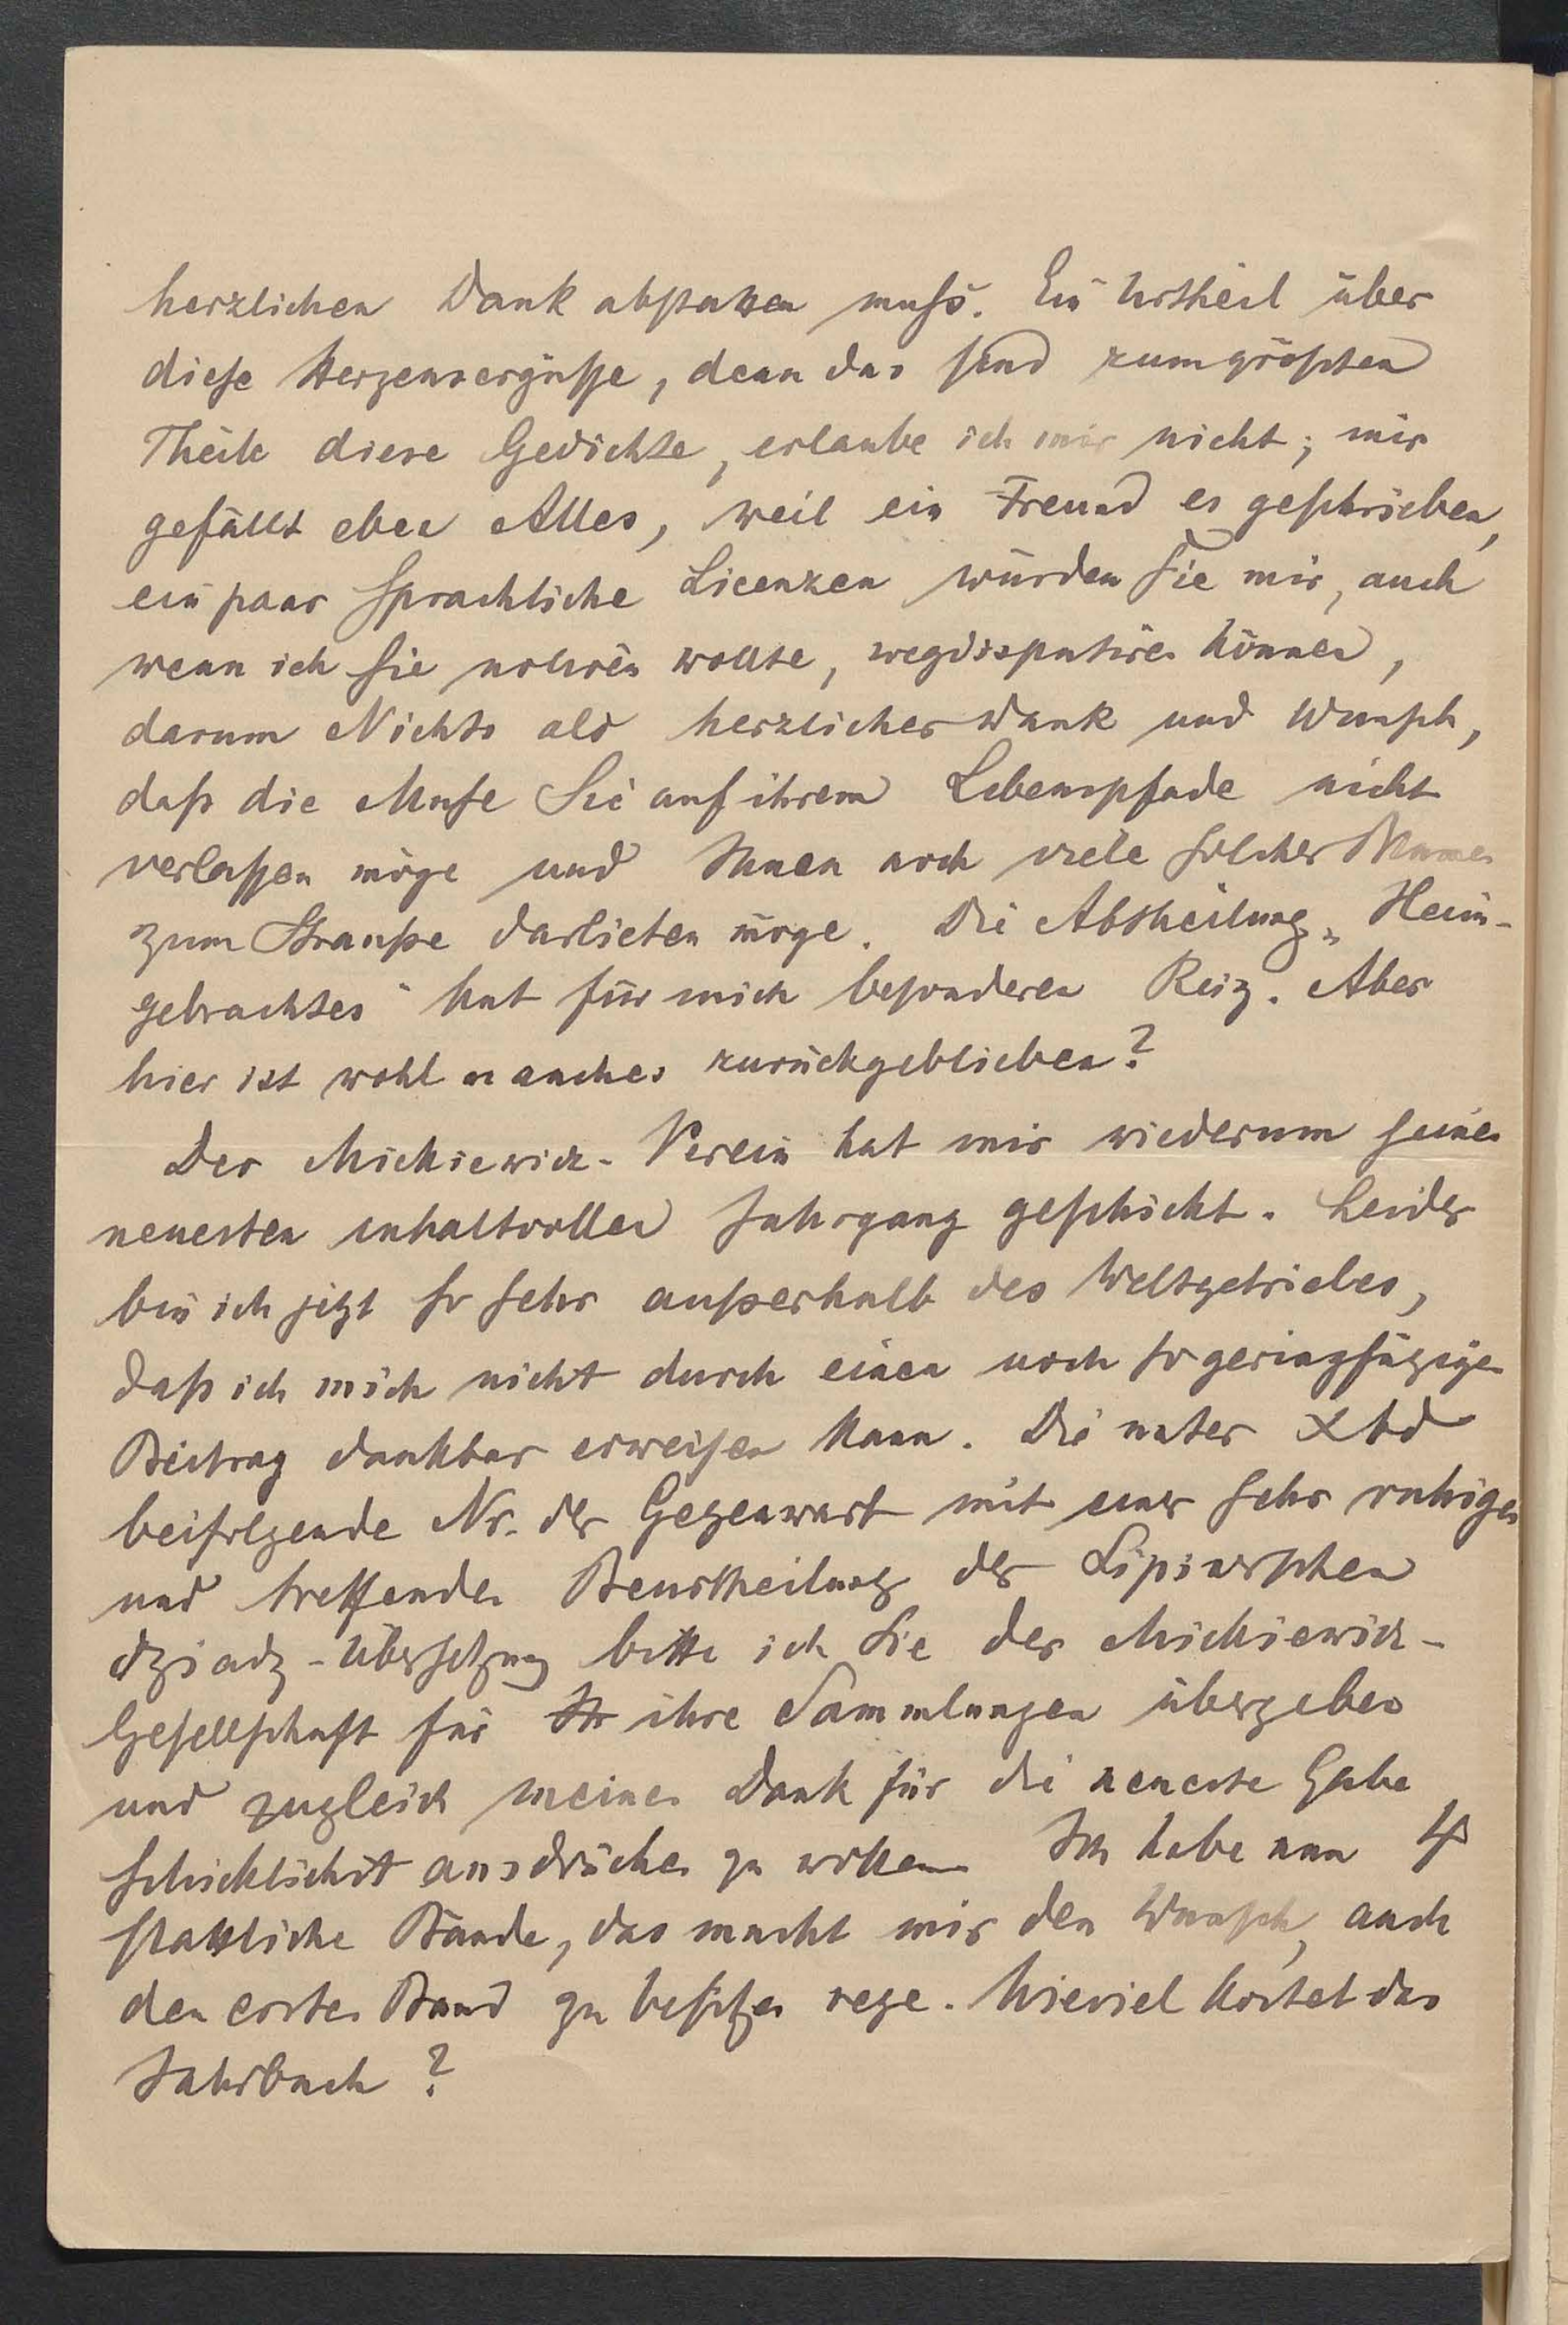 herzlichen Dank abstatten muß. Ein Urtheil über
diese Herzensergüsse, denn das sind zum größten
Theile diese Gedichte, erlaube ich mir nicht; mir
gefällt eben Alles, weil ein Freund es geschrieben,
ein paar sprachliche Licenzen würden Sie mir, auch
wenn ich sie notiren wollte, wegdisputiren können,
darum Nichts als herzlicher Dank und Wunsch,
daß die Muse Sie auf ihrem Lebenspfade nicht
verlassen möge und Ihnen noch viele solcher Blumen
zum Strauße darbieten möge. Die Abtheilung „Heim-
gebrachtes" hat für mich besonderen Reiz. Aber
hier ist wohl manches zurückgeblieben?
Der Mickiewicz-Verein hat mir wiederum seinen
neuesten inhaltvollen Jahrgang geschickt. Leider
bin ich jetzt so sehr außerhalb des Weltgetriebes,
daß ich mich nicht durch einen noch so geringfügigen
Beitrag dankbar erweisen kann. Die unter Xbd
beifolgende Nr. der Gegenwart mit einer sehr ruhigen
und treffenden Beurtheilung der Lipinerschen
dziady-Übersetzung bitte ich Sie der Mickiewicz-
Gesellschaft für Ih ihre Sammlungen übergeben
und zugleich meinen Dank für die neueste Gabe
schicklichst ausdrücken zu wollen Ich habe nun 4
stattliche Bände, das macht mir den Wunsch, auch
den ersten Band zu besitzen rege. Wieviel kostet das
Jahrbuch?